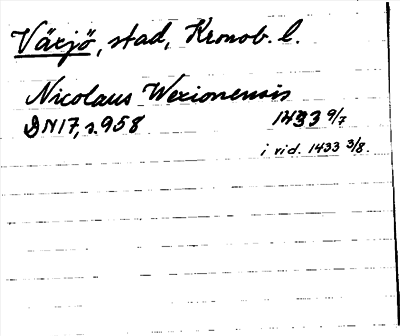 Växjö, stad, Kronob. l.
Nicolaus Wexionensis
DN17, s. 958 1433 9/7
i vid. 1433 3/8.